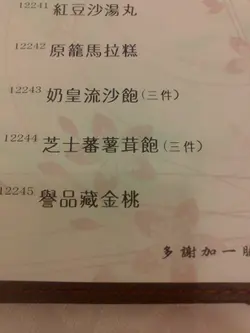 12241 紅豆沙湯丸
12242 原籠馬拉糕
12243 奶皇流沙飽(三件)
12244 芝士蕃薯茸飽(三件)
12245 譽品藏金桃
多謝加一